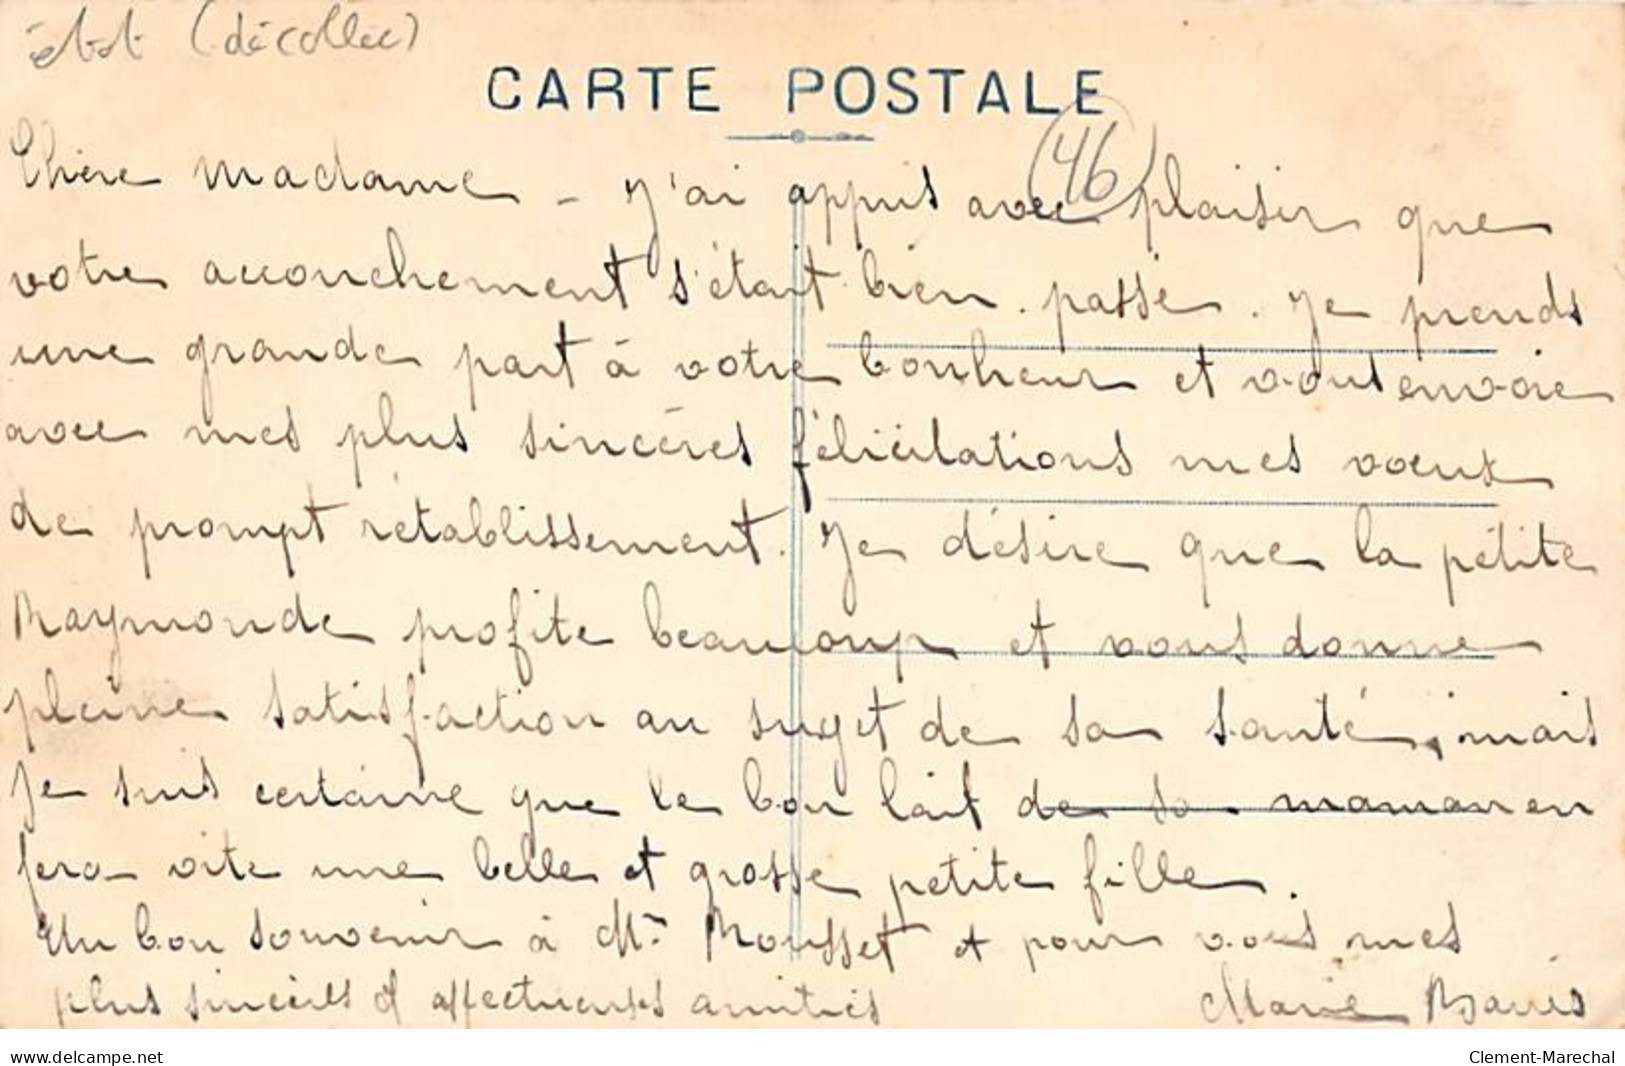 état (décollée)
CARTE POSTALE
(46)
Chère madame - J'ai appris avec plaisir que
votre accouchement s'était bien passé. Je prends
une grande part à votre bonheur et vous envoie
avec mes plus sincères félicitations mes vœux
de prompt rétablissement. Je désire que la pétite
Raymonde profite beaucoup et vous donne
pleine satisfaction au sujet de sa santé, mais
je suis certaine que le bon lait de sa maman en
fera vite une belle et grosse petite fille.
Un bon souvenir à Mr Rousset et pour vous mes
plus sincères et affectueuses amitiés
Marie
www.delcampe.net
Clement-Marechal